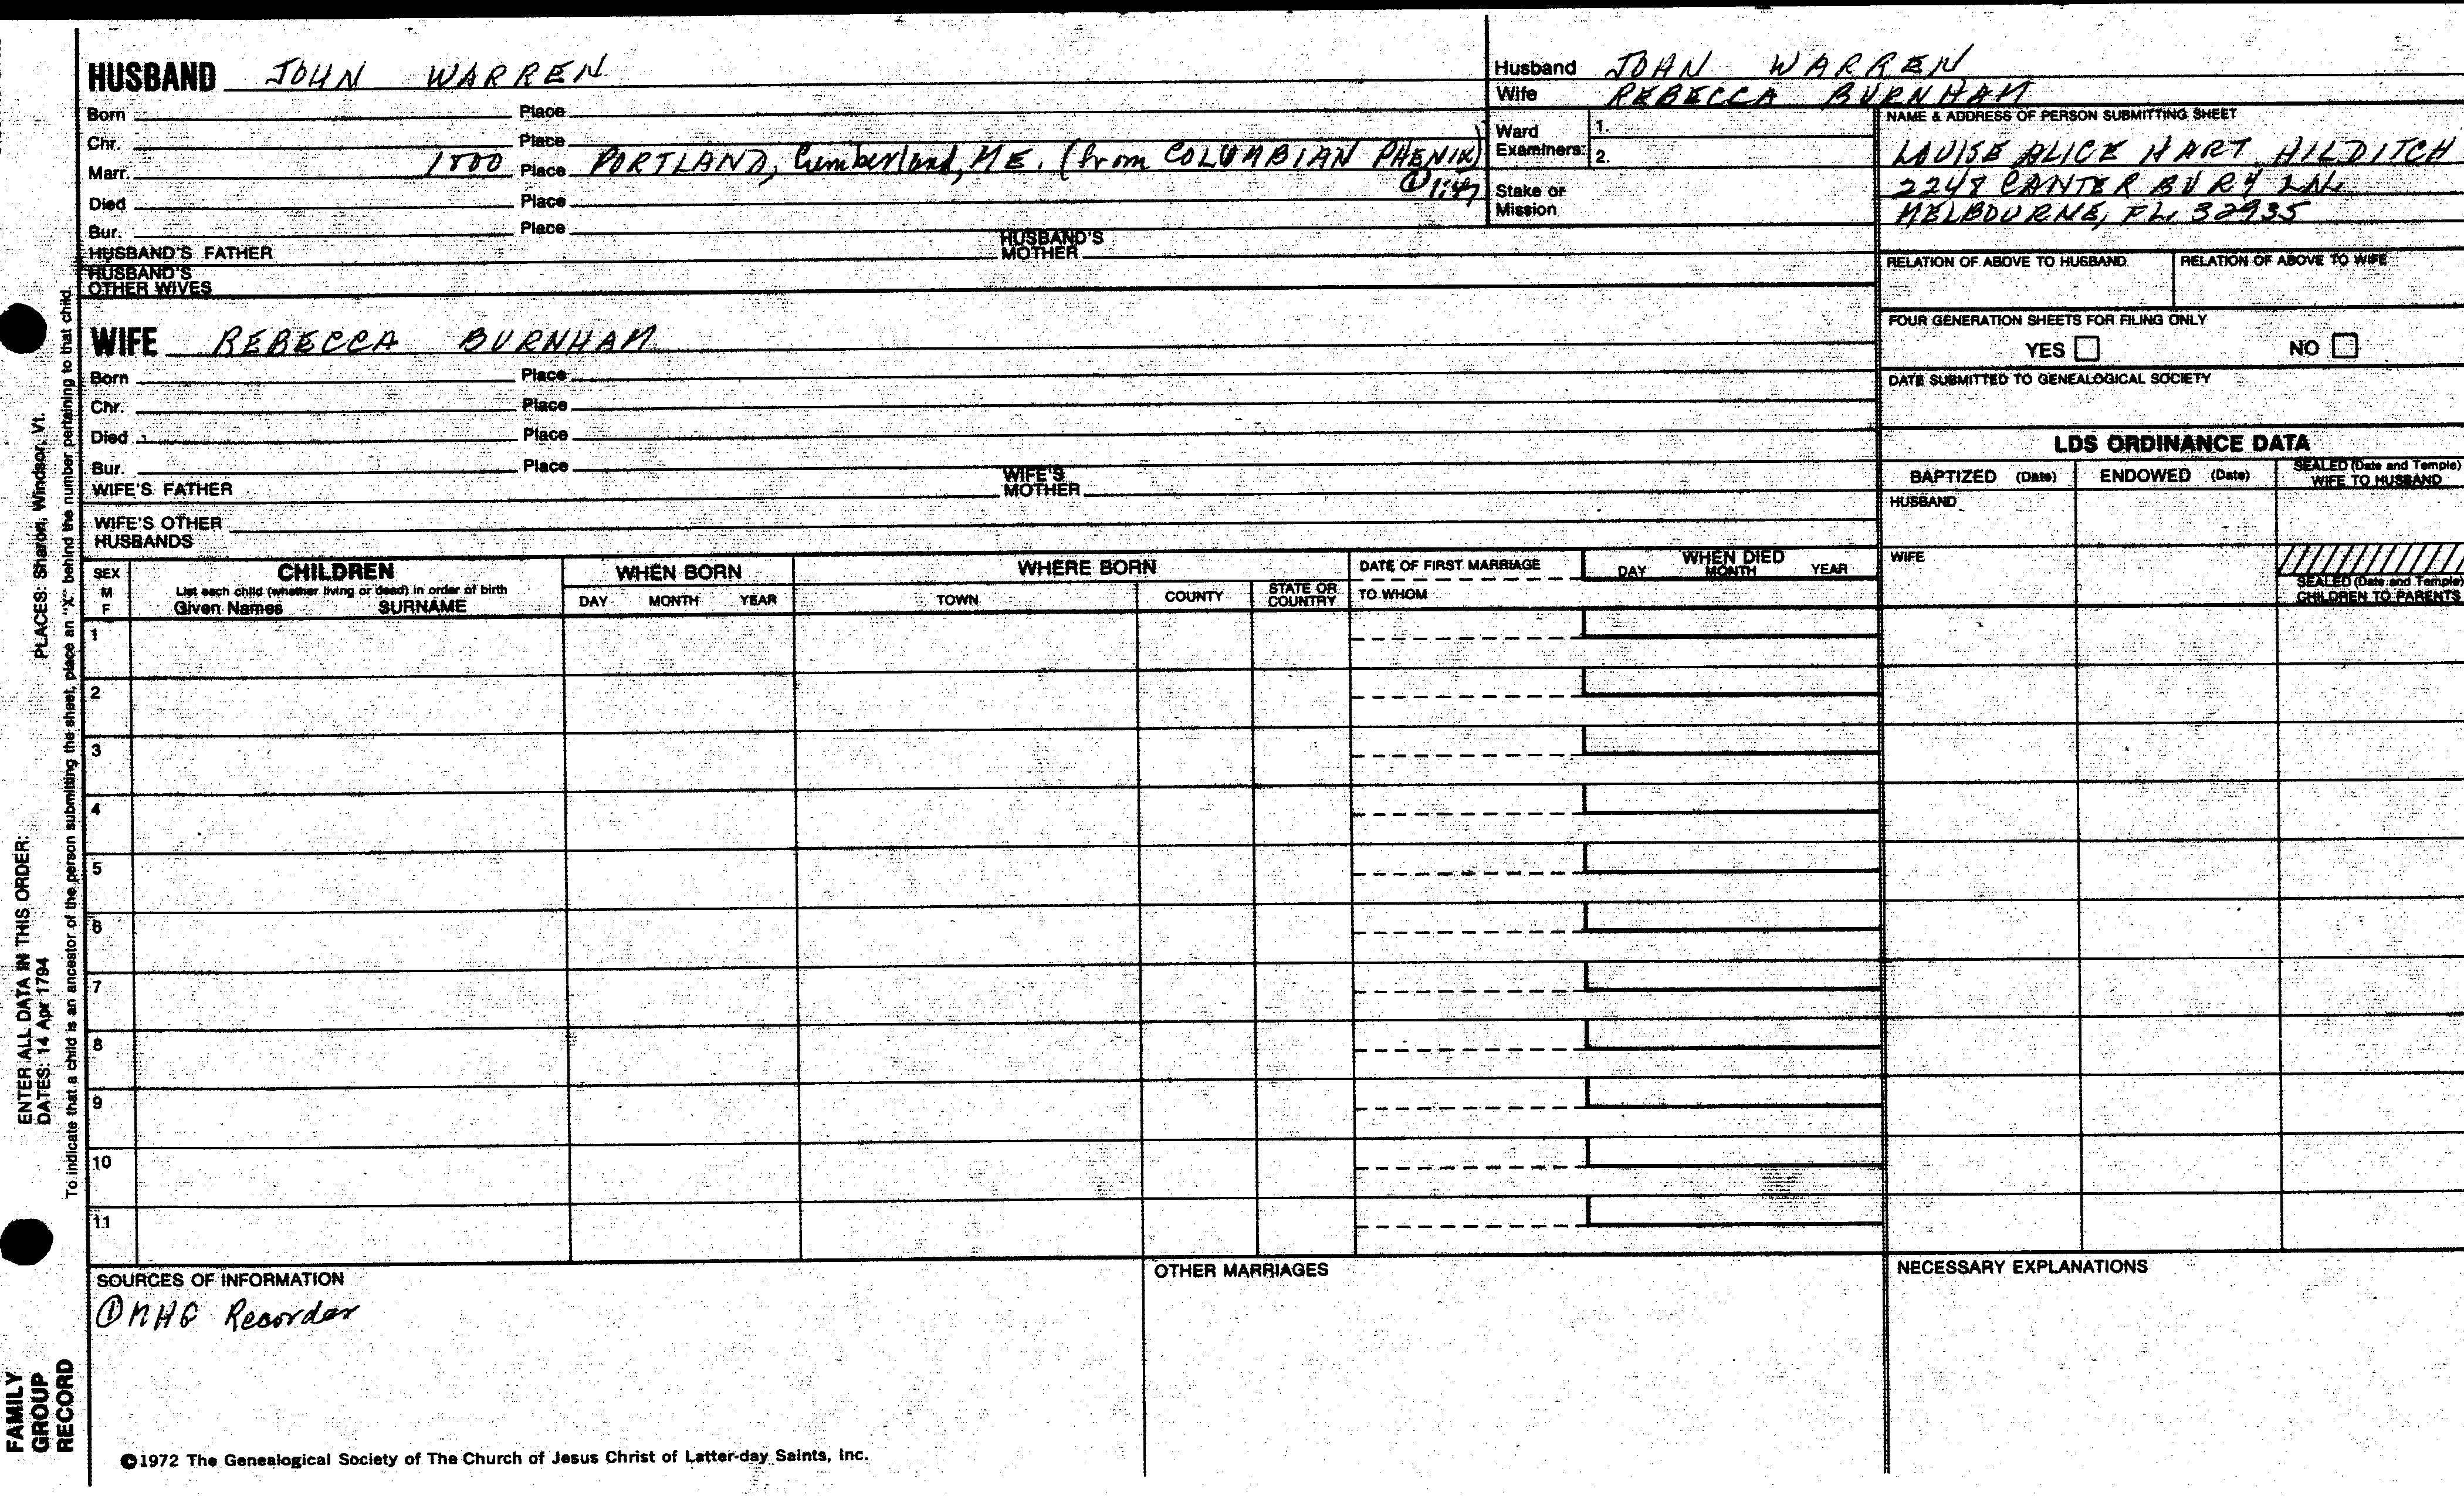 HUSBAND JOHN WARREN
Born Place
Chr. Place
Marr. 1800 Place PORTLAND, Cumberland, ME. (from COLUMBIAN PHENIX)
①
Died Place
Bur. Place
HUSBAND'S FATHER HUSBAND'S MOTHER
HUSBAND'S
OTHER WIVES
WIFE REBECCA BURNHAM
Born Place
Chr. Place
Died Place
Bur. Place
WIFE'S FATHER WIFE'S MOTHER
WIFE'S OTHER
HUSBANDS
Husband JOHN WARREN
Wife REBECCA BURNHAM
Ward
Examiners: 1.
2.
Stake or
Mission
NAME & ADDRESS OF PERSON SUBMITTING SHEET
LOUISE ALICE HART HILDITCH
2248 CANTERBURY LN.
MELBOURNE, FL 32935
RELATION OF ABOVE TO HUSBAND RELATION OF ABOVE TO WIFE
FOUR GENERATION SHEETS FOR FILING ONLY
YES NO
DATE SUBMITTED TO GENEALOGICAL SOCIETY
LDS ORDINANCE DATA
BAPTIZED (Date) ENDOWED (Date) SEALED (Date and Temple)
WIFE TO HUSBAND
HUSBAND
WIFE
SEALED (Date and Temple)
CHILDREN TO PARENTS
SEX
M
F
CHILDREN
List each child (whether living or dead) in order of birth
Given Names SURNAME
WHEN BORN
DAY MONTH YEAR
WHERE BORN
TOWN COUNTY STATE OR
COUNTRY
DATE OF FIRST MARRIAGE
TO WHOM
WHEN DIED
DAY MONTH YEAR
1
2
3
4
5
6
7
8
9
10
11
SOURCES OF INFORMATION
① Recorder
OTHER MARRIAGES
NECESSARY EXPLANATIONS
©1972 The Genealogical Society of The Church of Jesus Christ of Latter-day Saints, Inc.
ENTER ALL DATA IN THIS ORDER:
DATES: 14 Apr 1794 PLACES: Sharon, Windsor, Vt.
To indicate that a child is an ancestor of the person submitting the sheet, place an "X" behind the number pertaining to that child.
FAMILY
GROUP
RECORD